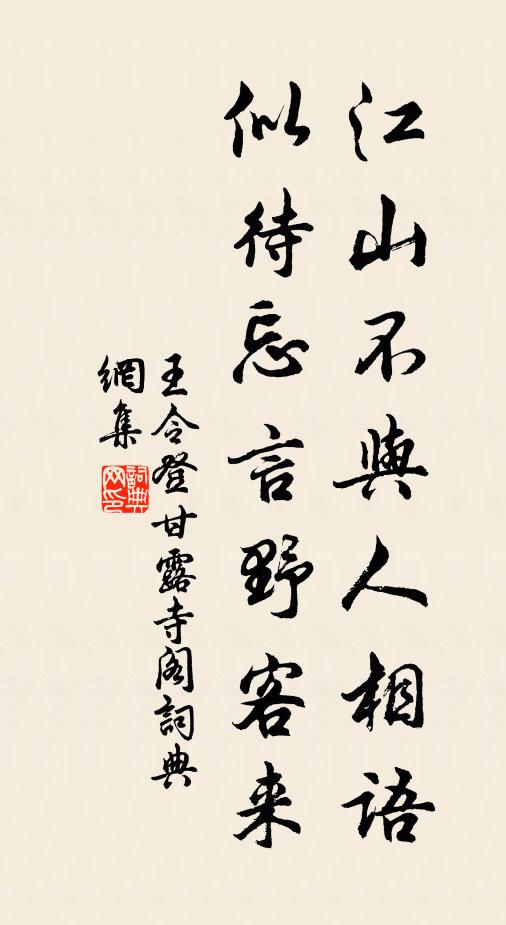 江山不與人相語
似待忘言野客来
王令登甘露寺阁詞典
網集
詞典
网印